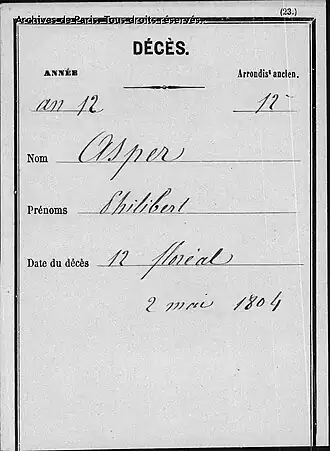 (23.)
Archives de Paris. Tous droits réservés.
DÉCÈS.
ANNÉE Arrondis.t ancien.
an 12 12
Nom Asper
Prénoms Philibert
Date du décès 12 floréal
2 mai 1804